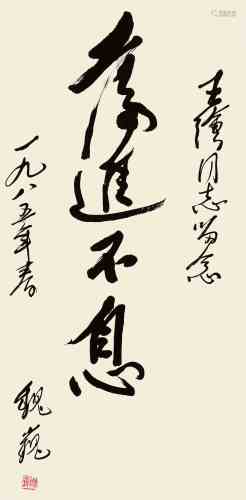 王濱同志留念
奋進不息
一九八五年春
魏巍